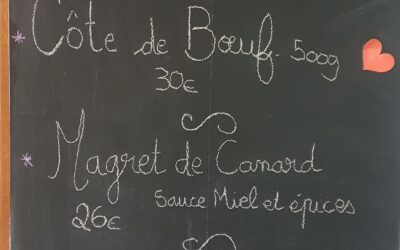 * Côte de Bœuf. 500g
30€
* Magret de Canard
Sauce Miel et épices
26€